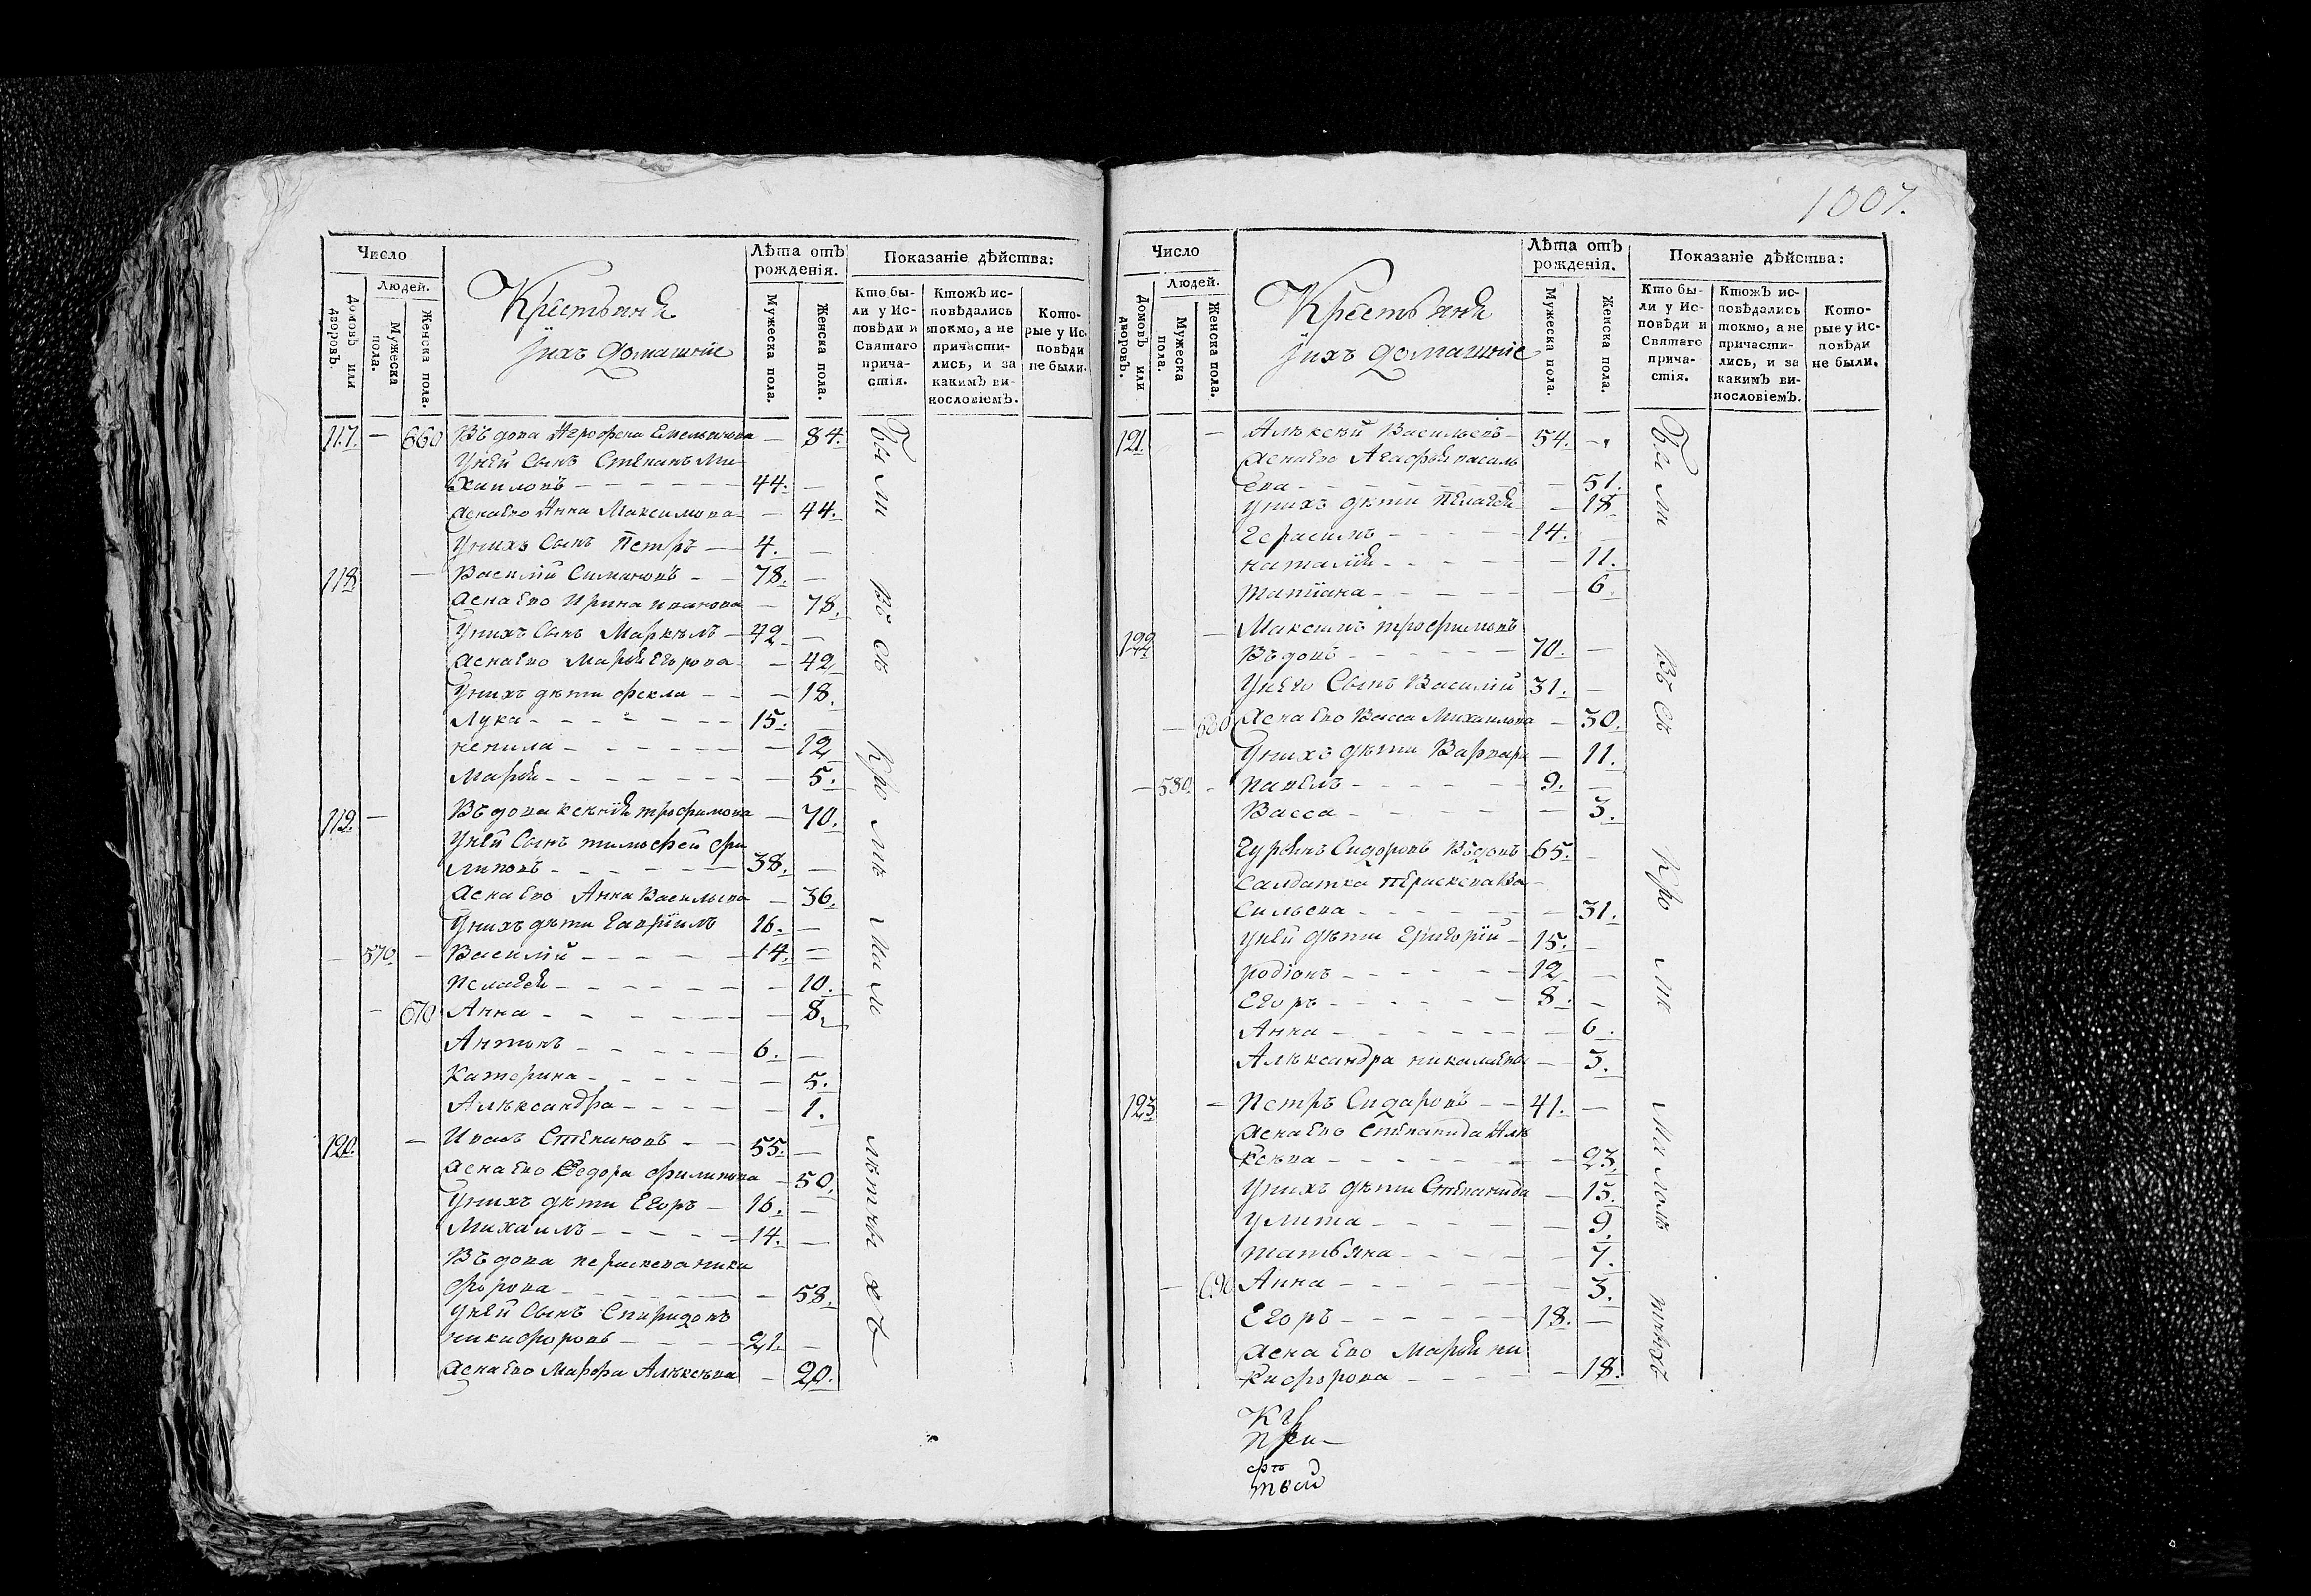 Число
Людей.
Домовъ или дворовъ.
Мужеска пола.
Женска пола.
Крестьянѣ
их домашнїе
Лѣта отъ рожденія.
Мужеска пола.
Женска пола.
Показаніе дѣйства:
Кто бы-
ли у Ис-
повѣди и
Святаго
прича-
стія.
Ктожъ ис-
повѣдались
токмо, а не
причасти-
лись, и за
какимъ ви-
нословіемъ.
Кото-
рые у Ис-
повѣди
не были.
117. — 660 Въдова Агрофена Емельянова — 84.
Уней Сынъ Степанъ Ми
хаиловъ 44. —
Жена Ево Анна Максимова — 44.
Унихъ Сынъ Петръ 4. —
118 — Василій Симановъ 78. —
Жена Ево Ирина Иванова — 78.
Унихъ Сынъ Маркелъ 42 —
Жена Ево Марья Егорова — 42
Унихъ дѣти Фекла — 18.
Лука 15. —
ненила — 12
Марья — 5.
119. — Въдова Ксенія трофимова — 70.
Уней Сынъ тимофей фи
липовъ 38. —
Жена Ево Анна Васильева — 36.
Унихъ дѣти Гаврїилъ 16. —
— 570. — Василій 14. —
Пелагея — 10.
— 670 Анна — 8.
Антонъ 6. —
Катерина — 5.
Алѣксандра — 1.
120. — Иванъ Степановъ 55. —
Жена Ево Федора филипова — 50.
Унихъ дѣти Егоръ 16. —
Михаилъ 14. —
Въдова перасковья ники
форова — 58.
Уней Сынъ Спиридонъ
никифоровъ 21. —
Жена Ево Марфа Алѣксѣва — 20.
Были всѣ кромѣ малолѣтныхъ
1007.
Число
Людей.
Домовъ или дворовъ.
Мужеска пола.
Женска пола.
Крестьянѣ
их домашнїе
Лѣта отъ рожденія.
Мужеска пола.
Женска пола.
Показаніе дѣйства:
Кто бы-
ли у Ис-
повѣди и
Святаго
прича-
стія.
Ктожъ ис-
повѣдались
токмо, а не
причасти-
лись, и за
какимъ ви-
нословіемъ.
Кото-
рые у Ис-
повѣди
не были.
121. — Алѣксѣй Васильевъ 54. —
Жена Ево Агафья василь
ева — 51.
Унихъ дѣти Пелагея — 18
Герасимъ 14. —
наталїя — 11.
татїана — 6.
122 — Максимъ трофимовъ
Въдовъ 70. —
Унего Сынъ Василїй 31. —
— 680 Жена Ево Васса Михаилова — 30.
Унихъ дѣти Варвара — 11.
— 580. — павелъ 9. —
Васса — 3.
Гурьянъ Сидоровъ Въдовъ 65. —
Салдатка Пераскева Ва
сильева — 31.
Уней дѣти Григорїй 15. —
родїонъ 12 —
Егоръ 8. —
Анна — 6.
Алѣксандра николаева — 3.
123 — Петръ Сидаровъ 41. —
Жена Ево Степанида Алѣ
ксѣва — 23.
Унихъ дѣти Степанида — 15.
улита — 9.
татьяна — 7.
— 690 Анна — 3.
Егоръ 18. —
Жена Ево Марья ни
кифорова — 18.
Были всѣ кромѣ малолѣтныхъ